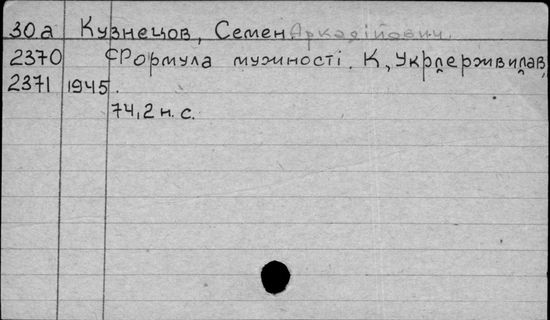 30а Кузнецов, Семен Аркадійович.
2370 Формула мужності. К, Укрдержвидав,
2371 1945.
74,2 н. с.